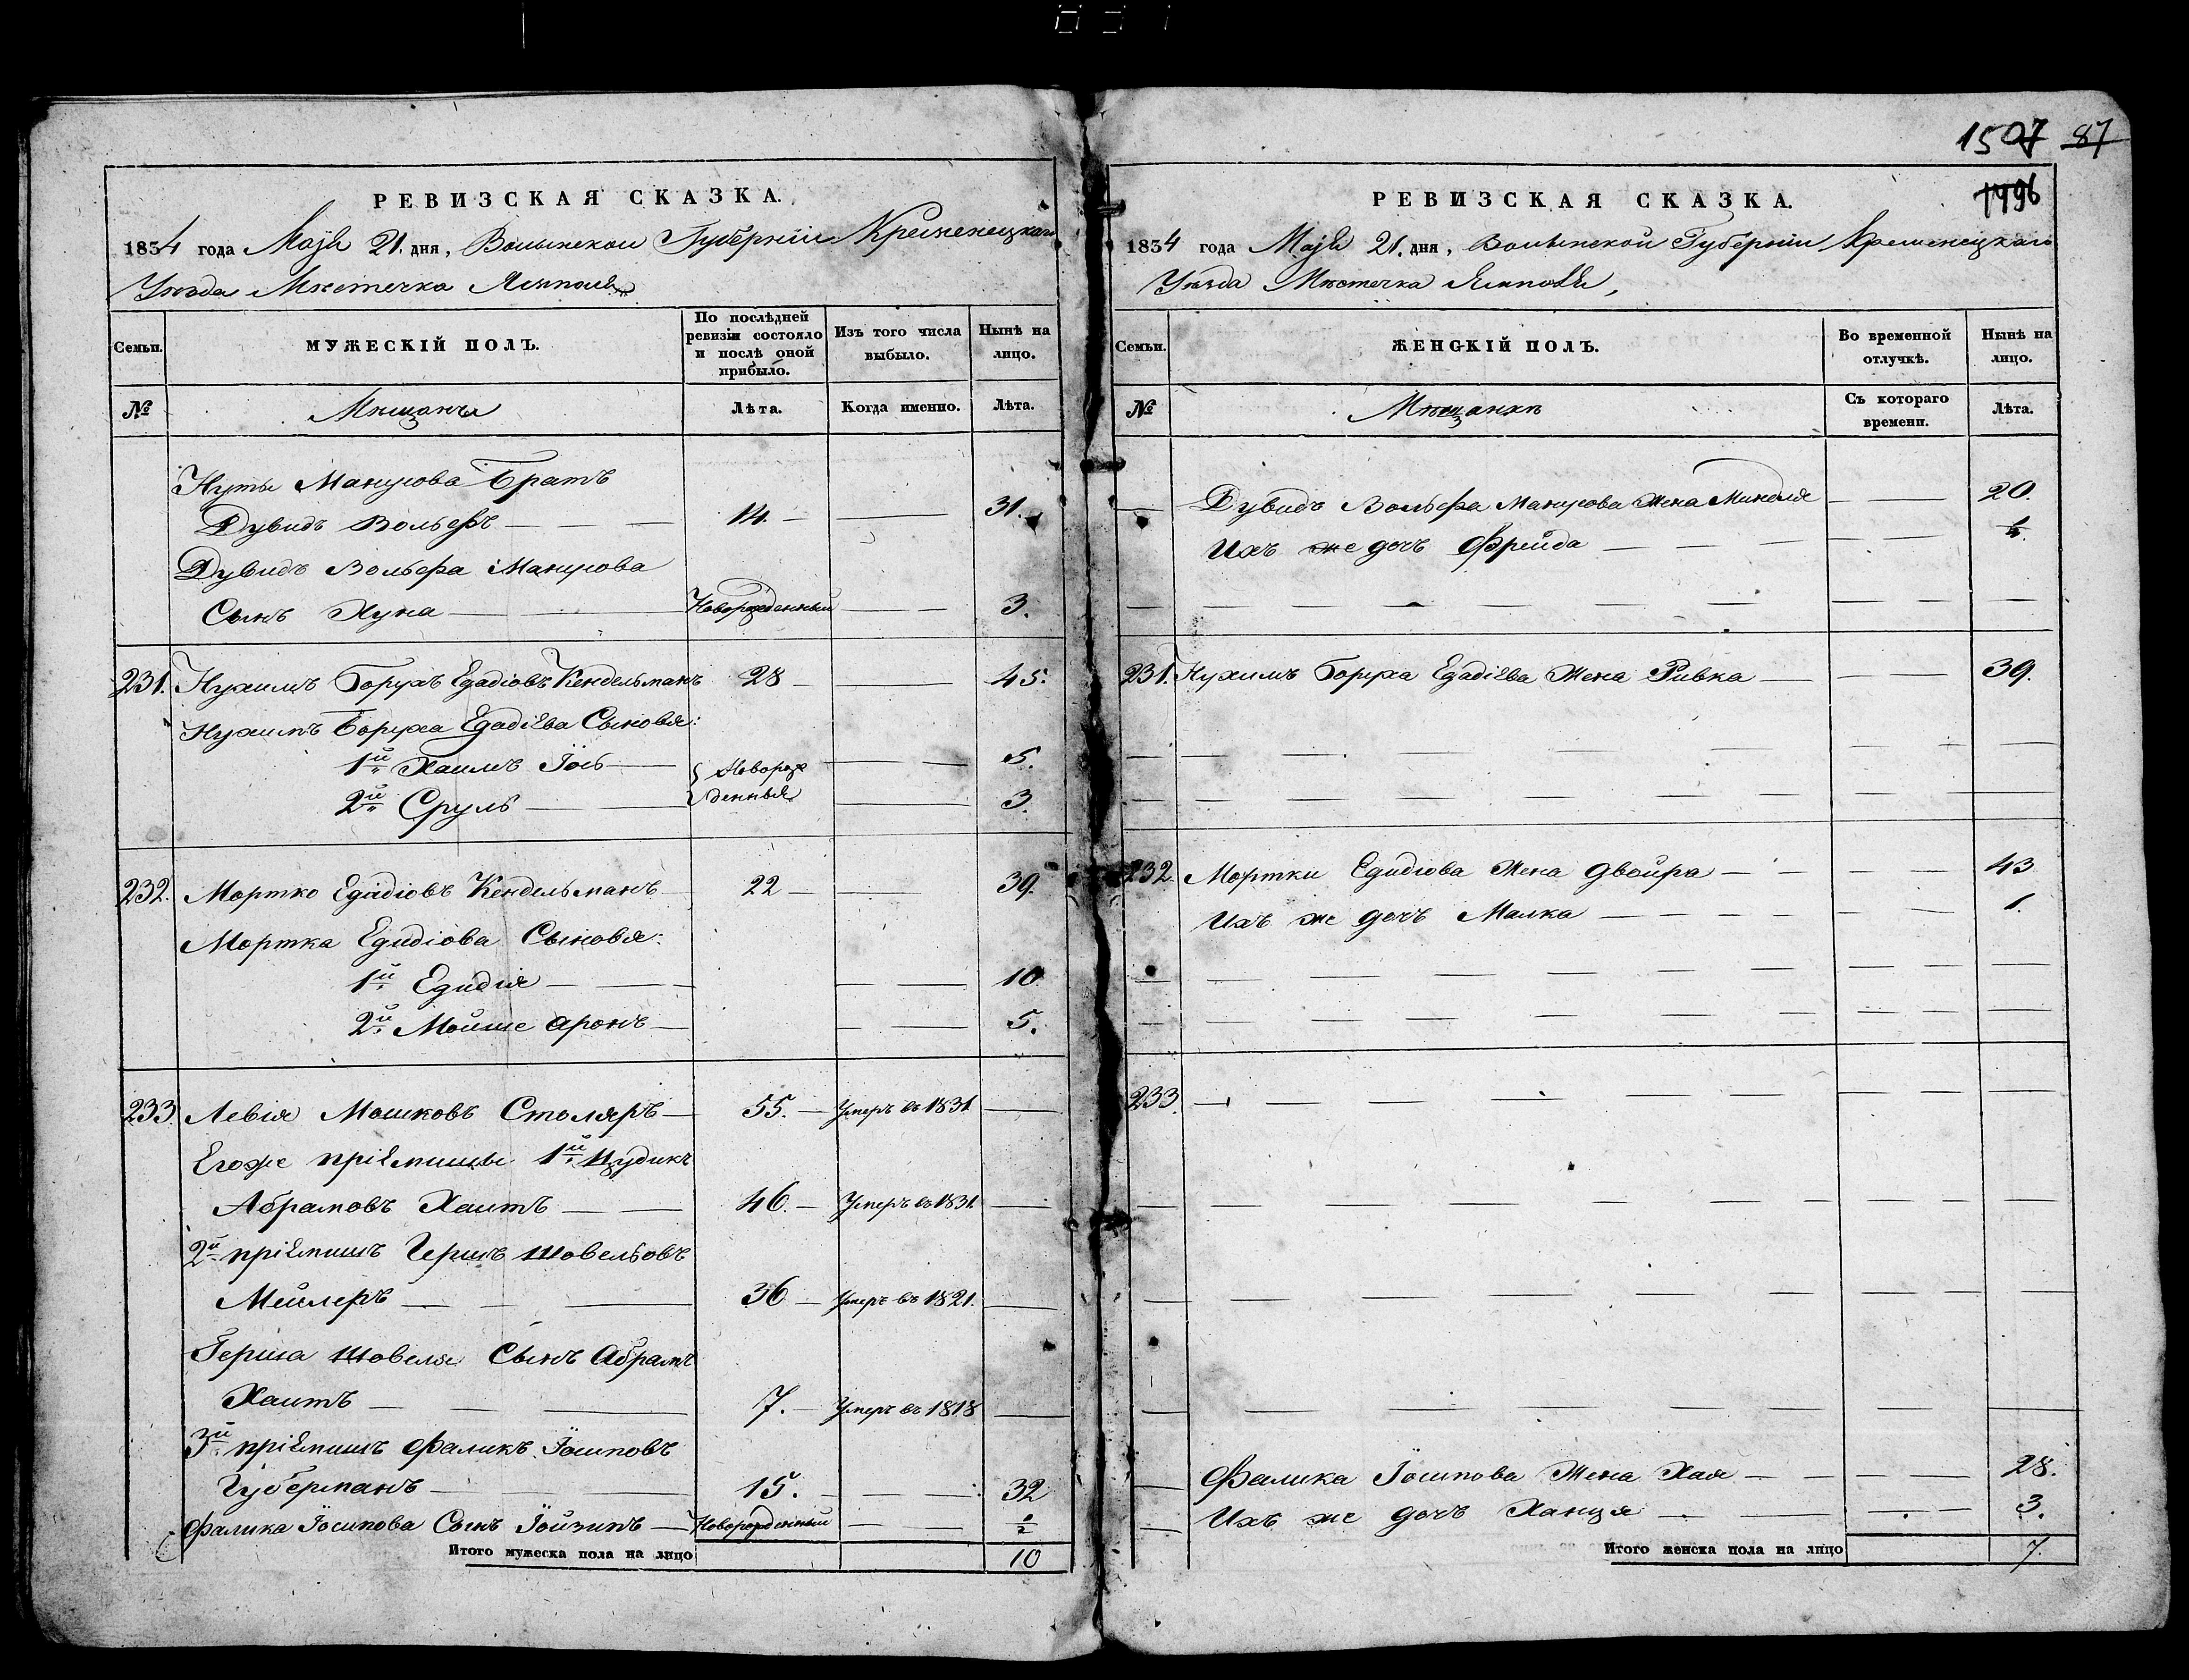 1507 87
1496
РЕВИЗСКАЯ СКАЗКА.
1834 года Маія 21. дня, Волынской Губерніи Кременецкаго
Уѣзда Мѣстечка Ямполя
Семьи.
МУЖЕСКІЙ ПОЛЪ.
По послѣдней ревизіи состояло и послѣ оной прибыло.
Изъ того числа выбыло.
Нынѣ на лицо.
№
Мѣщанъ
Лѣта.
Когда именно.
Лѣта.
Нуты Манусова Братъ
Дувидъ Вольфъ 14. 31.
Дувидъ Вольфа Манусова
Сынъ Хуна Новорожденный 3.
231. Нухимъ Борухъ Едадіовъ Кендельманъ 28 45.
Нухимъ Боруха Едадіева Сыновья:
1й Хаимъ Іось Новорож 5.
2й Сруль денныя 3.
232. Мортко Едидіовъ Кендельманъ 22 39.
Мортка Едидіова Сыновья:
1й Едидія 10.
2й Мойше Аронъ 5.
233. Левія Мошковъ Столяръ 55. Умеръ въ 1831
Егоже пріемыши 1й Иудикъ
Абрамовъ Хаитъ 46. Умеръ въ 1831.
2й пріемышъ Гершъ Шовельовъ
Мейлеръ 36 Умеръ въ 1821.
Герша Шовеля Сынъ Абрамъ
Хаитъ 7. Умеръ въ 1818
3й пріемышъ Фаликъ Іосиповъ
Губерманъ 15. 32
Фалика Іосипова Сынъ Іойзипъ Новорожденный ½
Итого мужеска пола на лицо 10
РЕВИЗСКАЯ СКАЗКА.
1834 года Маія 21. дня, Волынской Губерніи Кременецкаго
Уѣзда Мѣстечка Ямполя,
Семьи.
ЖЕНСКІЙ ПОЛЪ.
Во временной отлучкѣ.
Нынѣ на лицо.
№
Мѣщанкѣ
Съ котораго времени.
Лѣта.
Дувидъ Вольфа Манусова Жена Миндля 20.
Ихъ же дочь Фрейда
231. Нухимъ Боруха Едадіева Жена Ривка 39.
232. Мортки Едидіова Жена Двойра 43
Ихъ же дочь Малка 1.
233.
Фалика Іосипова Жена Хая 28.
Ихъ же дочь Ханця 3.
Итого женска пола на лицо 7.